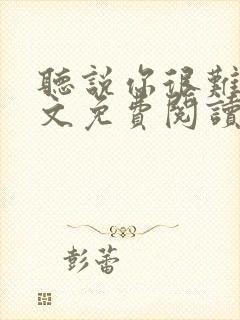 聽說你很難
文免費閱讀
彭蕾